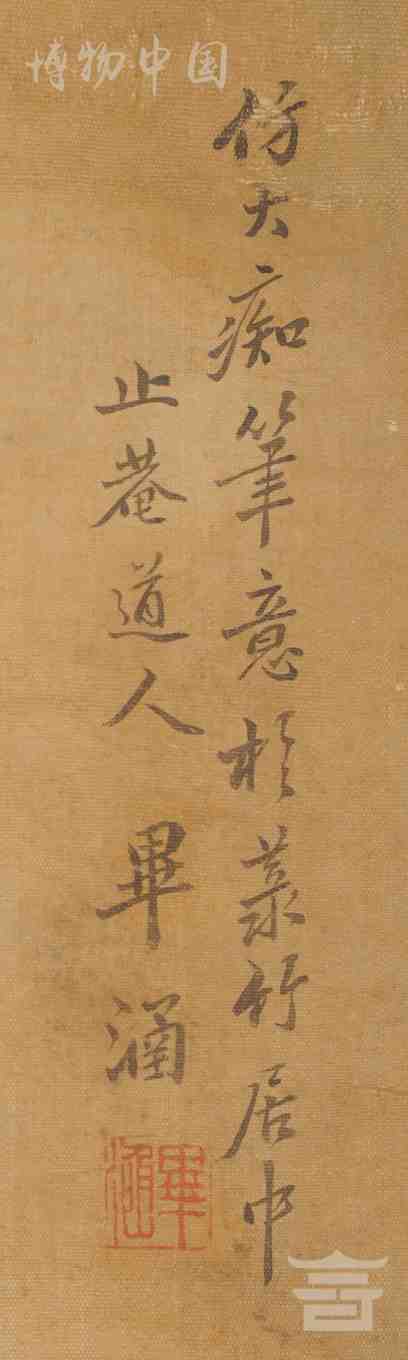 博物中国
仿大痴筆意扵菉竹居中
止菴道人 畢涵
畢涵